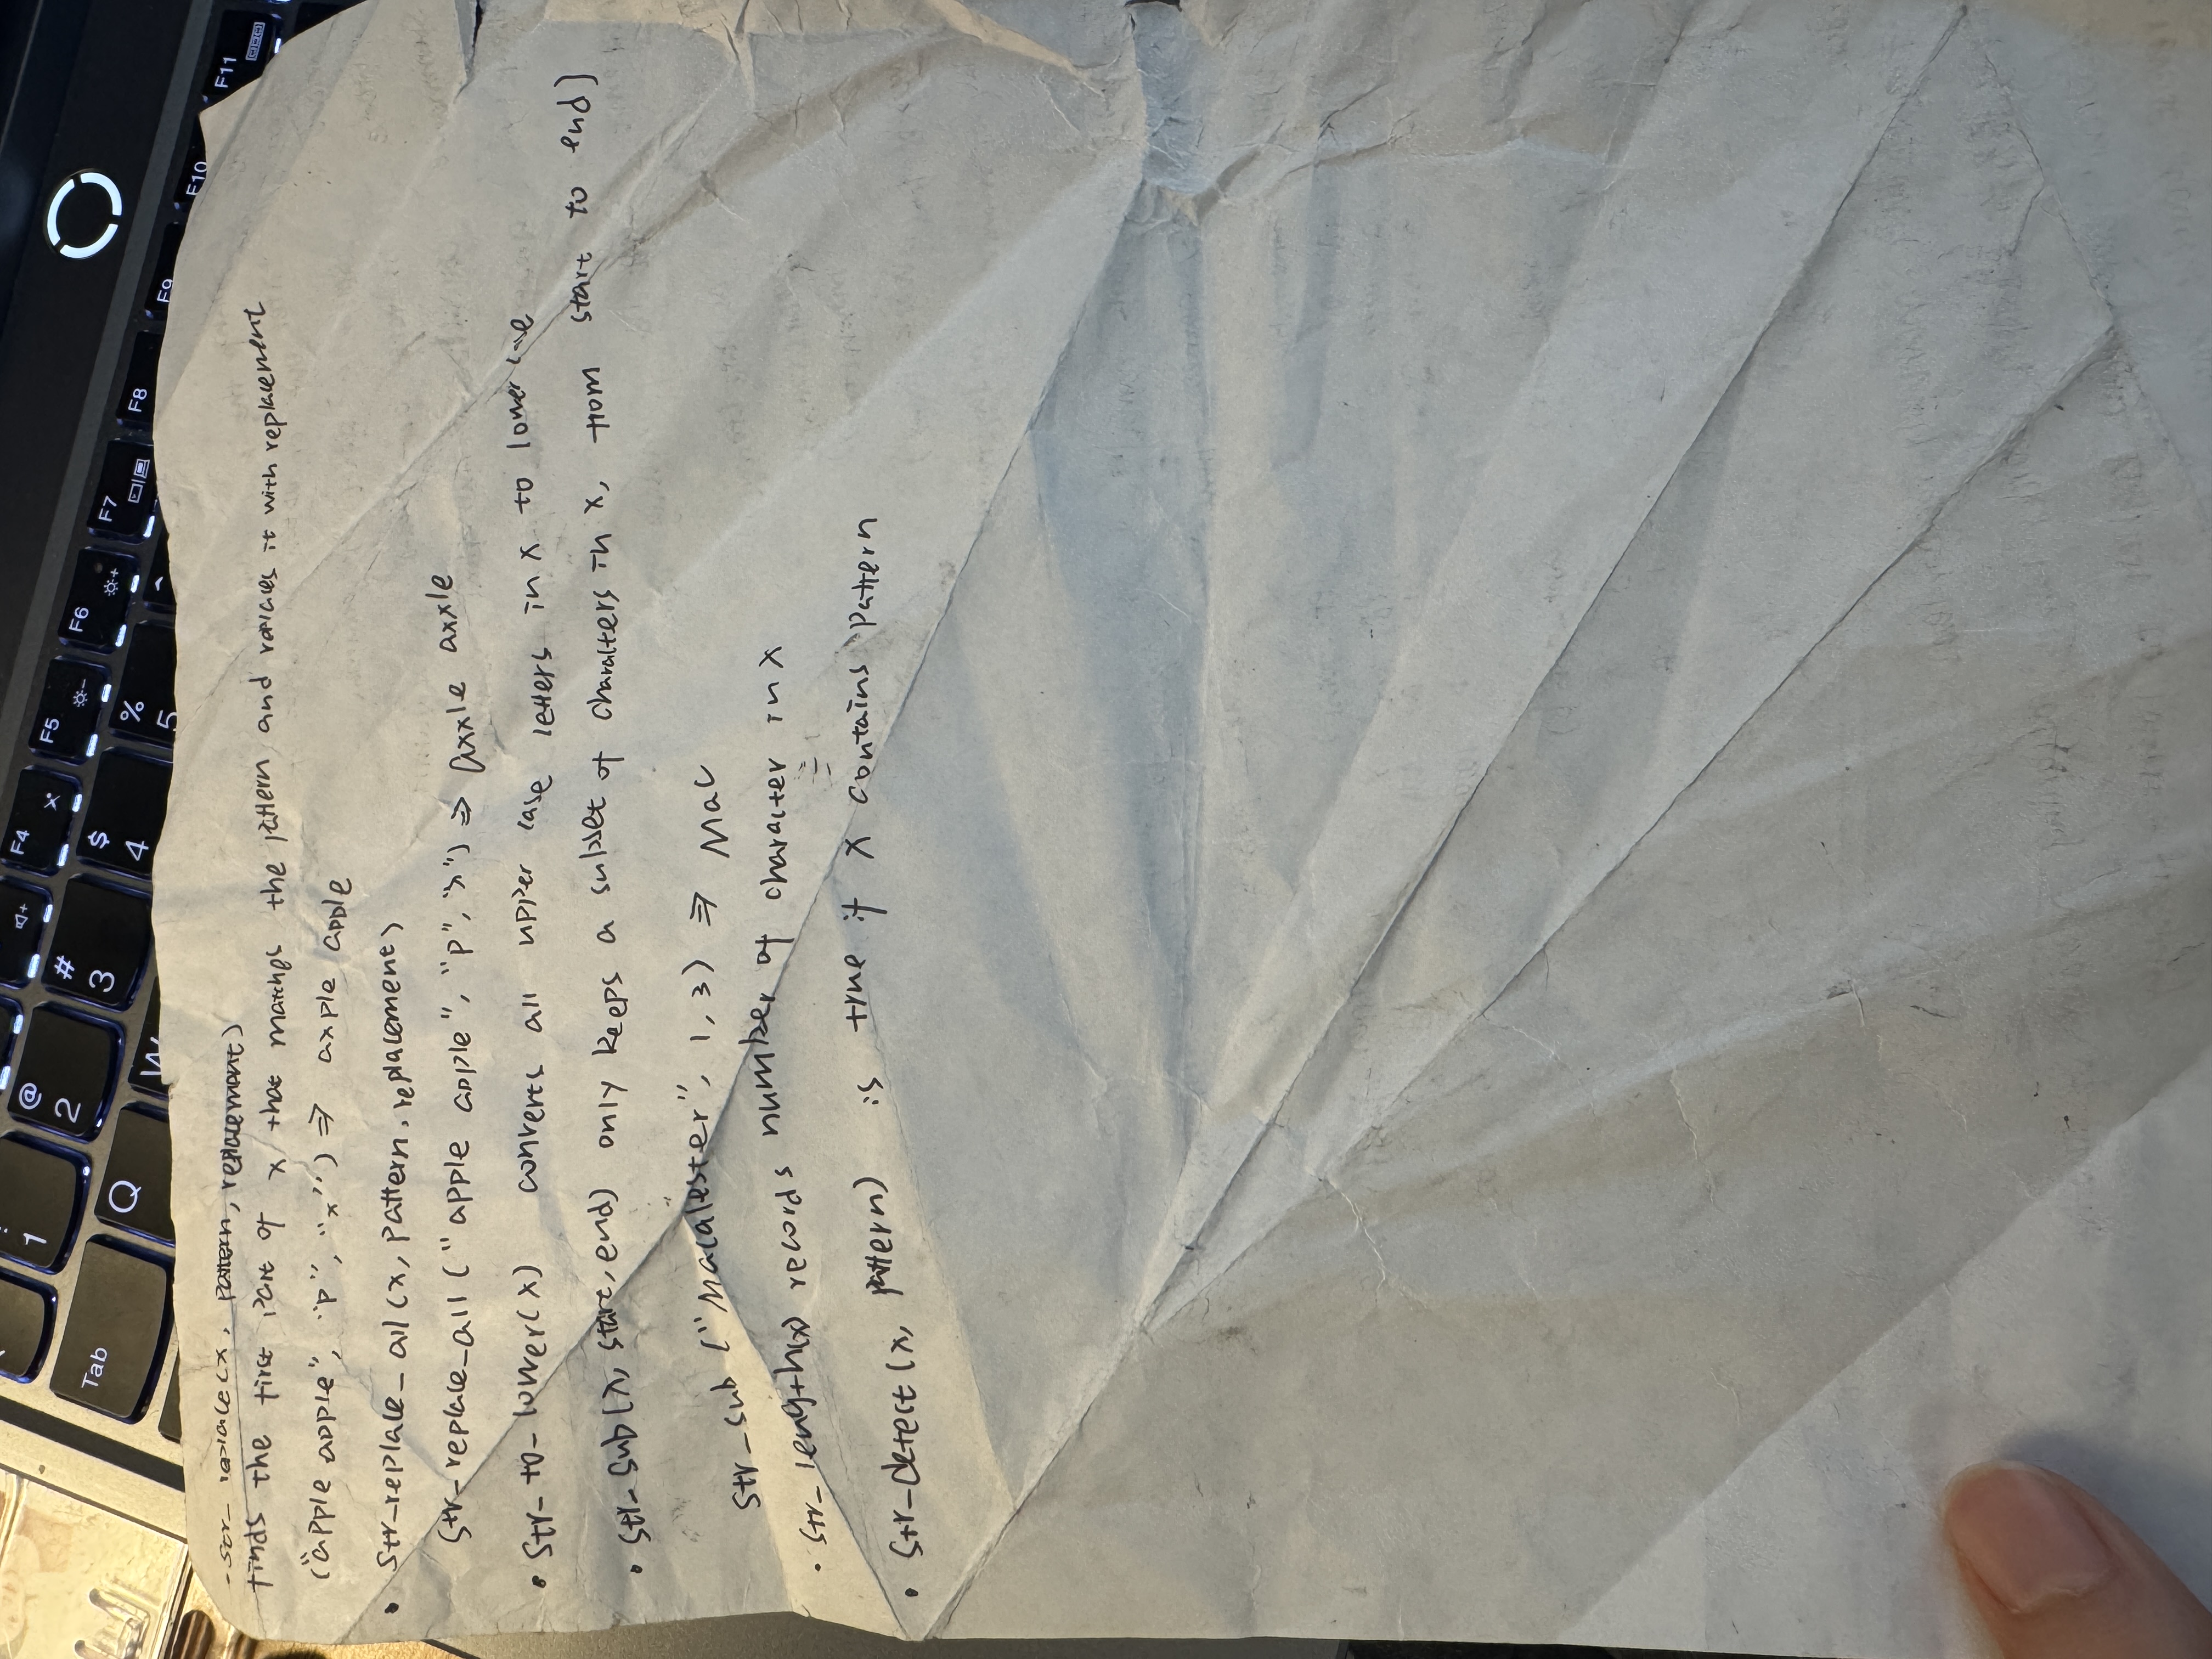 1
@
2
#
3
$
4
%
5
F4
F5
F6
F7
F8
F9
F10
F11
Tab
Q
W
- str_ replace(x, pattern, replacement)
finds the first part of x that matches the pattern and replaces it with replacement
("apple apple", "p", "x") ⇒ axple apple
• str_replace_all(x, pattern, replacement)
str_replace_all("apple apple", "p", "x") ⇒ axxle axxle
• str_to_lower(x) converts all upper case letters in x to lower case
• str_sub(x, start, end) only keeps a subset of characters in x, from start to end]
str_sub("Macalester", 1, 3) ⇒ Mac
• str_length(x) records number of character in x
• str_detect(x, pattern) is true if x contains pattern